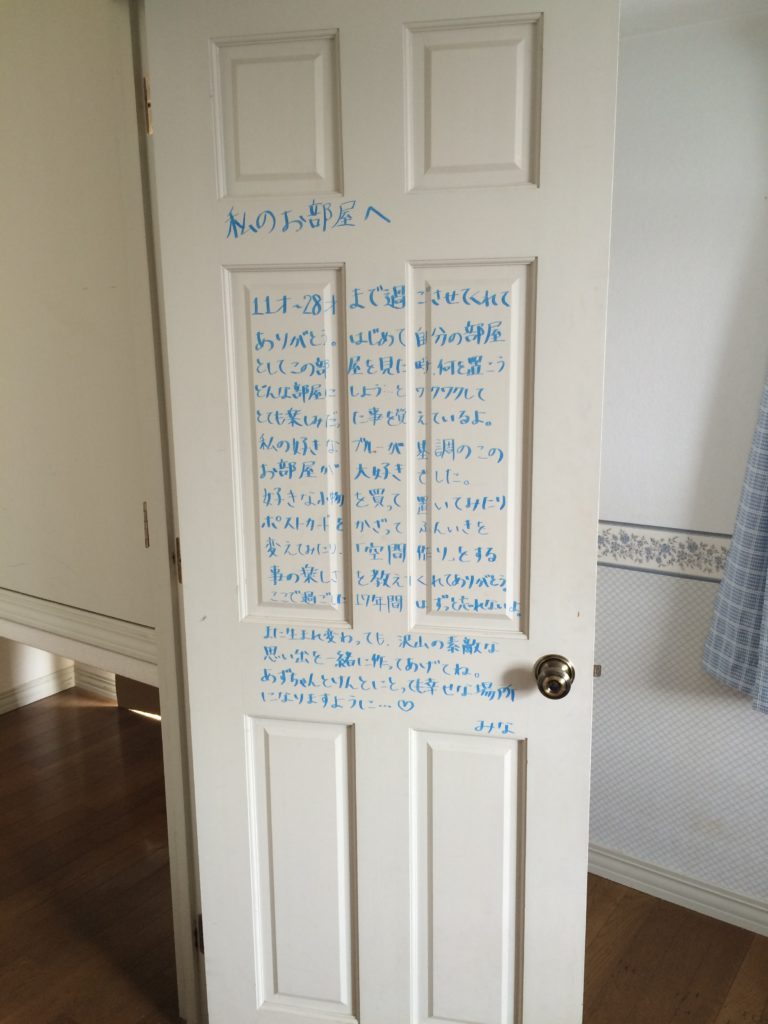 私のお部屋へ
11才〜28才まで過ごさせてくれて
ありがとう。はじめて自分の部屋
としてこの部屋を見た時、何を置こう
どんな部屋にしよう…とワクワクして
とても楽しみだった事を覚えているよ。
私の好きなブルーが基調のこの
お部屋が大好きでした。
好きな小物を買って置いてみたり
ポストカードをかざってふんいきを
変えてみたり、「空間作り」とする
事の楽しさを教えてくれてありがとう。
ここで過ごした17年間はずっと忘れないよ。
また生まれ変わっても、沢山の素敵な
思い出を一緒に作ってあげてね。
あずちゃんとりんとにとっても幸せな場所
になりますように…♡
みな